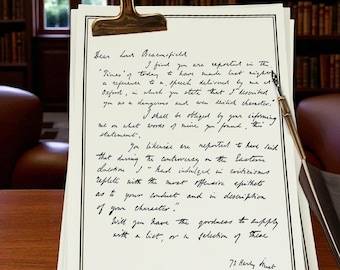 Dear Lord Beaconsfield
I find you are reported in the
"Times" of today to have made last night
a reference to a speech delivered by me at
Oxford, in which you state that I described
you as a dangerous and even devilish character.
I shall be obliged by your informing
me on what words of mine you found this
statement.
You likewise are reported to have said
that during the controversy on the Eastern
Question I "had indulged in criticisms
replete with the most offensive epithets
as to your conduct and in description
of your character."
Will you have the goodness to supply
with a list, or a selection of these
73 Harley Street